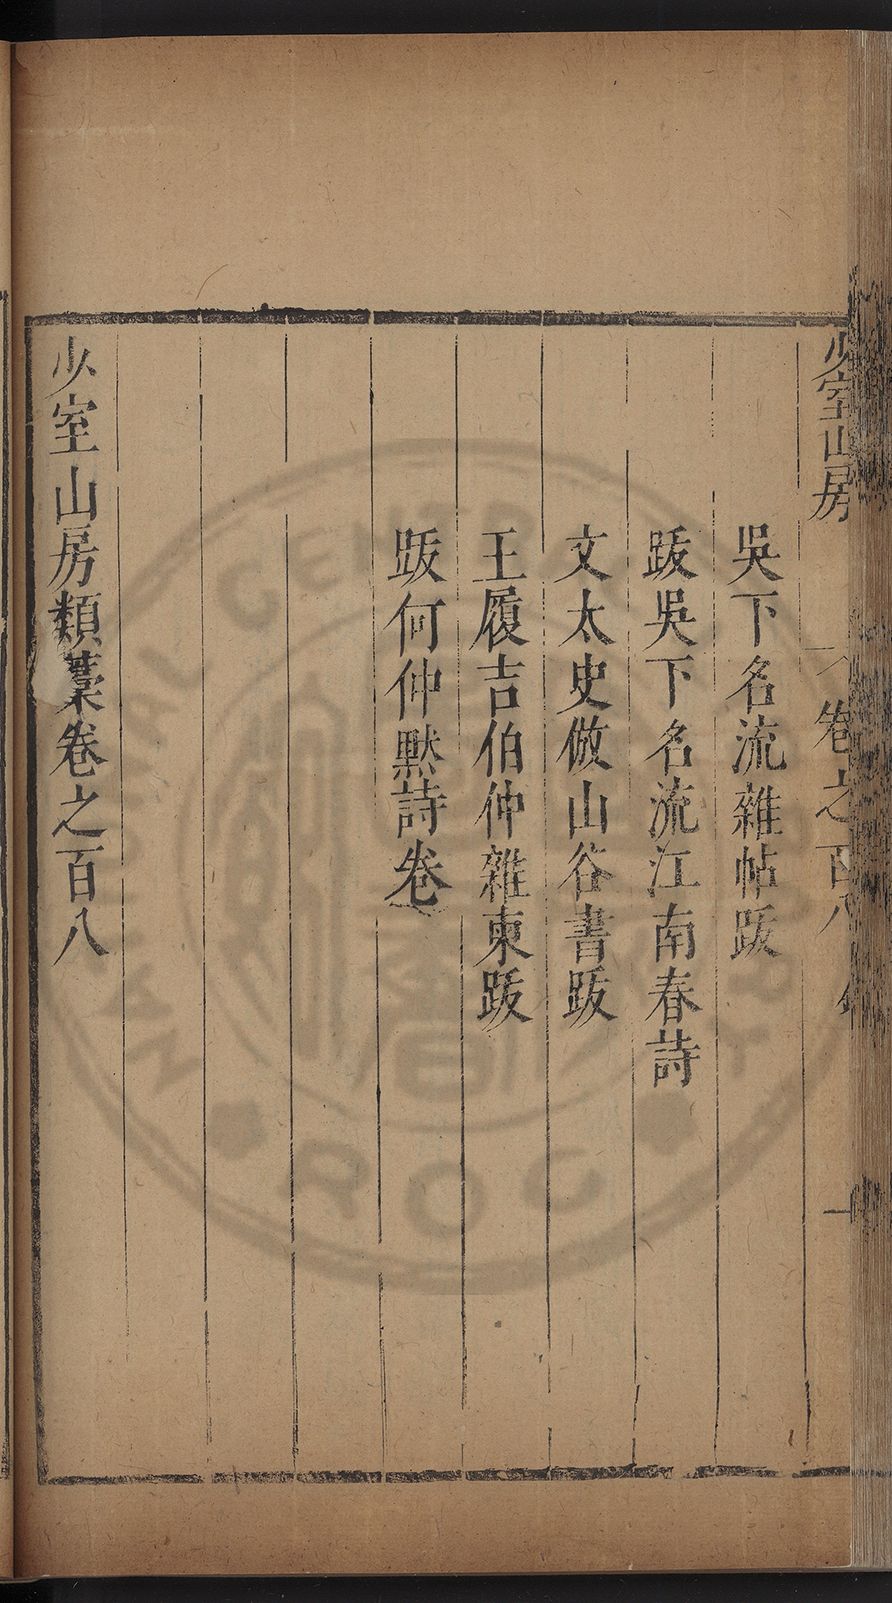 少室山房 卷之百八
吳下名流雜帖跋
跋吳下名流江南春詩
文太史倣山谷書跋
王履吉伯仲雜柬跋
跋何仲默詩卷
少室山房類藁卷之百八